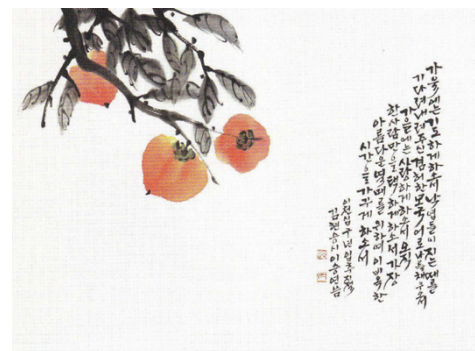 가을에는 기도하게 하소서 낙엽들이 지는 때를
기다려 내게 주신 겸허한 모국어로 나를 채우소서
가을에는 사랑하게 하소서 오직
한 사람만을 택하게 하소서 가장
아름다운 열매를 위하여 이 비옥한
시간을 가꾸게 하소서
김현승 시